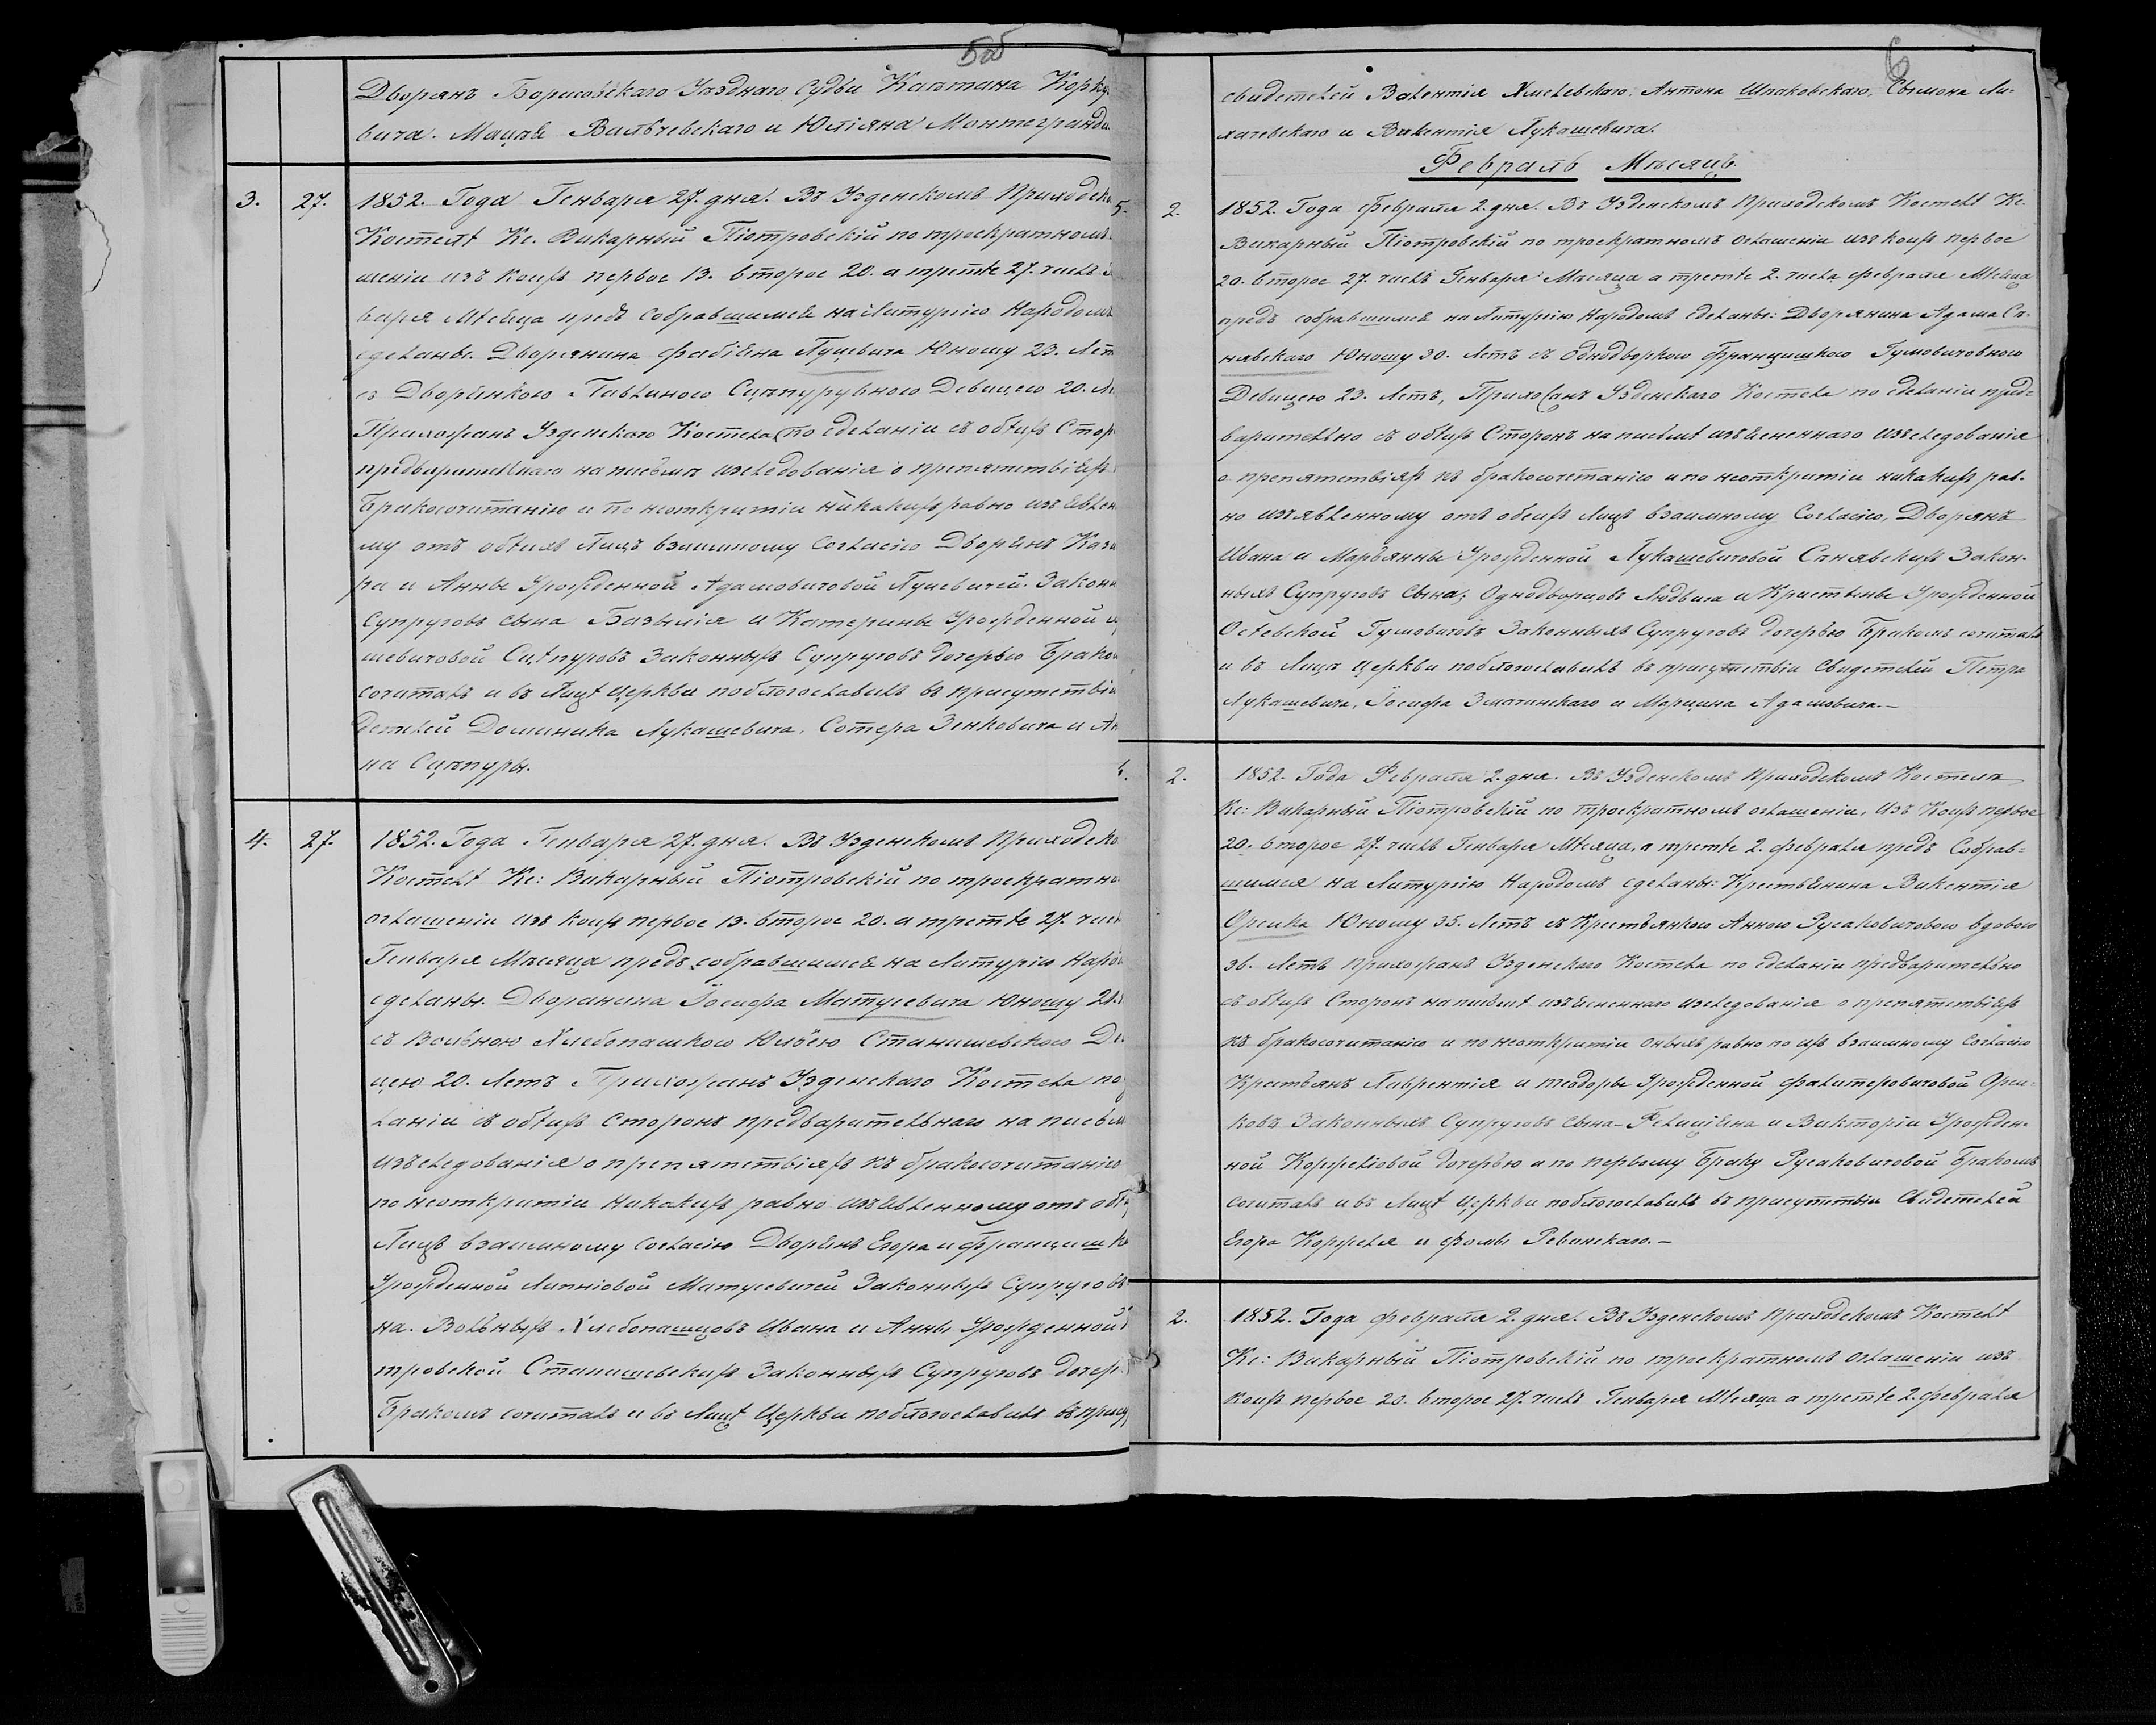 5об
Дворянъ Борисовскаго Уѣзднаго Судьи Каэтана Корку
вича. Мацѣя Вальчевскаго и Юліяна Монтегранди
3. 27. 1852. Года Генваря 27. дня. Въ Узденскомъ Приходско
Костелѣ Кс. Викарный Піотровскій по троекратномъ
шеніи изъ коихъ первое 13. второе 20. а третіе 27. числъ
варя Мѣсяца предъ собравшимся на Литургію Народомъ
сделаны. Дворянина Фабіяна Пушевича Юношу 23. Лет
съ Дворянкою Павлиною Сцѣпурувною Девицею 20. Ле
Прихожанъ Узденскаго Костела по сделаніи съ обѣихъ Стор
предварительнаго на писъмѣ изследованія о препятствіяхъ
Бракосочитанію и по неоткритіи никакихъ равно изъявлен
му отъ обѣихъ Лицъ взаимному согласію Дворянъ Кази
ра и Анны Урожденной Адамовичовой Пушевичей. Законн
Супруговъ сына Базылія и Катерины Урожденной
шевичовой Сцѣпуровъ Законныхъ Супруговъ дочерью Брако
сочиталъ и въ Лицѣ Церкви поблогославилъ въ присутствіи
детелей Доминика Лукашевича, Сотера Зенковича и Ан
на Сцѣпуры.
4. 27. 1852. Года Генваря 27. дня. Въ Узденскомъ Приходско
Костелѣ Кс: Викарный Піотровскій по троекратно
оглашеніи изъ коихъ первое 13. второе 20. а третіе 27. числ
Генваря Мѣсяца предъ собравшимся на Литургію Наро
сделаны. Дворанина Іосифа Матусевича Юношу 21.
съ Вольною Хлебопашкою Юльею Станишевскою Де
цею 20. Летъ Прихожанъ Узденскаго Костела по
ланіи съ обѣихъ сторонъ предварительнаго на писъм
изъследованія о препятствіяхъ къ бракосочитанію
по неоткритіи никакихъ равно изъявленному отъ обѣ
Лицъ взаимному согласію Дворянъ Егора и Францишк
Урожденной Липніовой Матусевичей Законныхъ Супруговъ
на. Вольныхъ Хлебопашцовъ Ивана и Анны Урожденной
тровской Станишевскихъ Законныхъ Супруговъ дочер
Бракомъ сочиталъ и въ Лицѣ Церкви поблогославилъ въ прису
6
свидетелей Валентія Хмелевскаго. Антона Шпаковскаго, Сымона Ли-
хачевскаго и Викентія Лукашевича.
Февраль Мѣсяцъ
5. 2. 1852. Года Февраля 2. дня. Въ Узденскомъ Приходскомъ Костелѣ Кс.
Викарный Піотровскій по троекратномъ оглашеніи изъ коихъ первое
20. второе 27. числъ Генваря Мѣсяца а третіе 2. числа Февраля Мѣсяца
предъ собравшимся на Литургію Народомъ сделаны: Дворянина Адама Ся-
нявскаго Юношу 30. Летъ съ Однодворкою Францишкою Гумовичовною
Девицею 23. Летъ, Прихожанъ Узденскаго Костела по сделаніи пред-
варительно съ обѣихъ Сторонъ на писъмѣ изъясненнаго изследованія
о препятствіяхъ къ бракосочетанію и по неоткритіи никакихъ рав-
но изъявленному отъ обеихъ Лицъ взаимному Согласію, Дворянъ
Ивана и Марьянны Урожденной Лукашевичовой Синявскихъ Закон-
ныхъ Супруговъ Сына; Однодворцовъ Людвига и Кристыны Урожденной
Осѣевской Гумовичовъ Законныхъ Супруговъ дочерью Бракомъ сочиталъ
и въ Лицѣ Церкви поблогославилъ въ присутствіи Свидетелей Петра
Лукашевича, Іосифа Змачинскаго и Марцина Адамовича.-
6. 2. 1852. Года Февраля 2. дня. Въ Узденскомъ Приходскомъ Костелѣ
Кс: Викарный Піотровскій по троекратномъ оглашеніи, изъ Коихъ первое
20. второе 27. числъ Генваря Мѣсяца, а третіе 2. февраля предъ Собрав-
шимся на Литургію Народомъ сделаны: Крестьянина Викентія
Орсика Юношу 35. Летъ съ Крестьянкою Анною Русаковичовою вдовою
36. Летъ прихожанъ Узденскаго Костела по сделаніи предварительно
съ обѣихъ Сторонъ на писъмѣ изъясненнаго изследованія о препятствіяхъ
къ бракосочитанію и по неоткритіи оныхъ равно по ихъ взаимному Согласію
Крестьянъ Лаврентія и Теодоры Урожденной Фалитеровичовой Орси-
ковъ Законныхъ Супруговъ Сына- Фелиціяна и Викторіи Урожден-
ной Корфеліовой дочерью а по первому Браку Русаковичовой Бракомъ
сочиталъ и въ Лицѣ Церкви поблогославилъ въ присутствіи Свидетелей
Егора Корфеля и Фомы Ревинскаго.-
2. 1852. Года февраля 2. дня. Въ Узденскомъ Приходскомъ Костелѣ
Кс: Викарный Піотровскій по троекратномъ оглашеніи изъ
коихъ первое 20. второе 27. числъ Генваря Мѣсяца а третіе 2. февраля